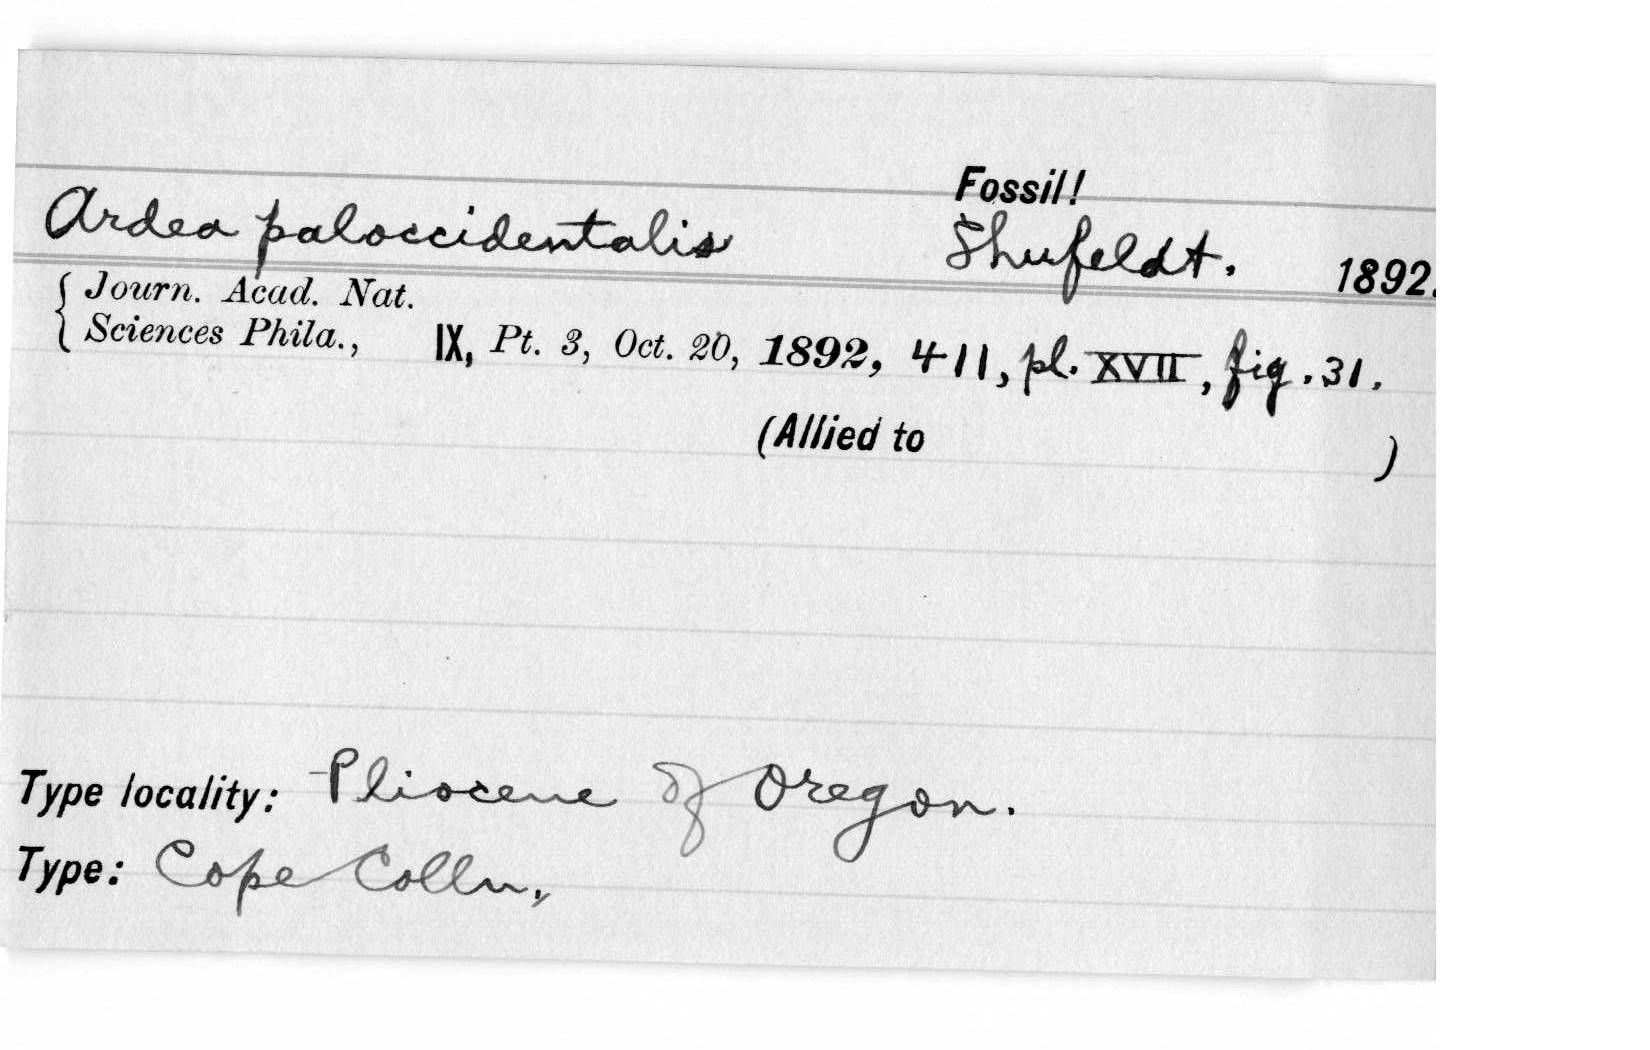 Fossil!
Ardea paloccidentalis Shufeldt. 1892.
Journ. Acad. Nat.
Sciences Phila., IX, Pt. 3, Oct. 20, 1892, 411, pl. XVII, fig. 31.
(Allied to )
Type locality: Pliocene of Oregon.
Type: Cope Colln.